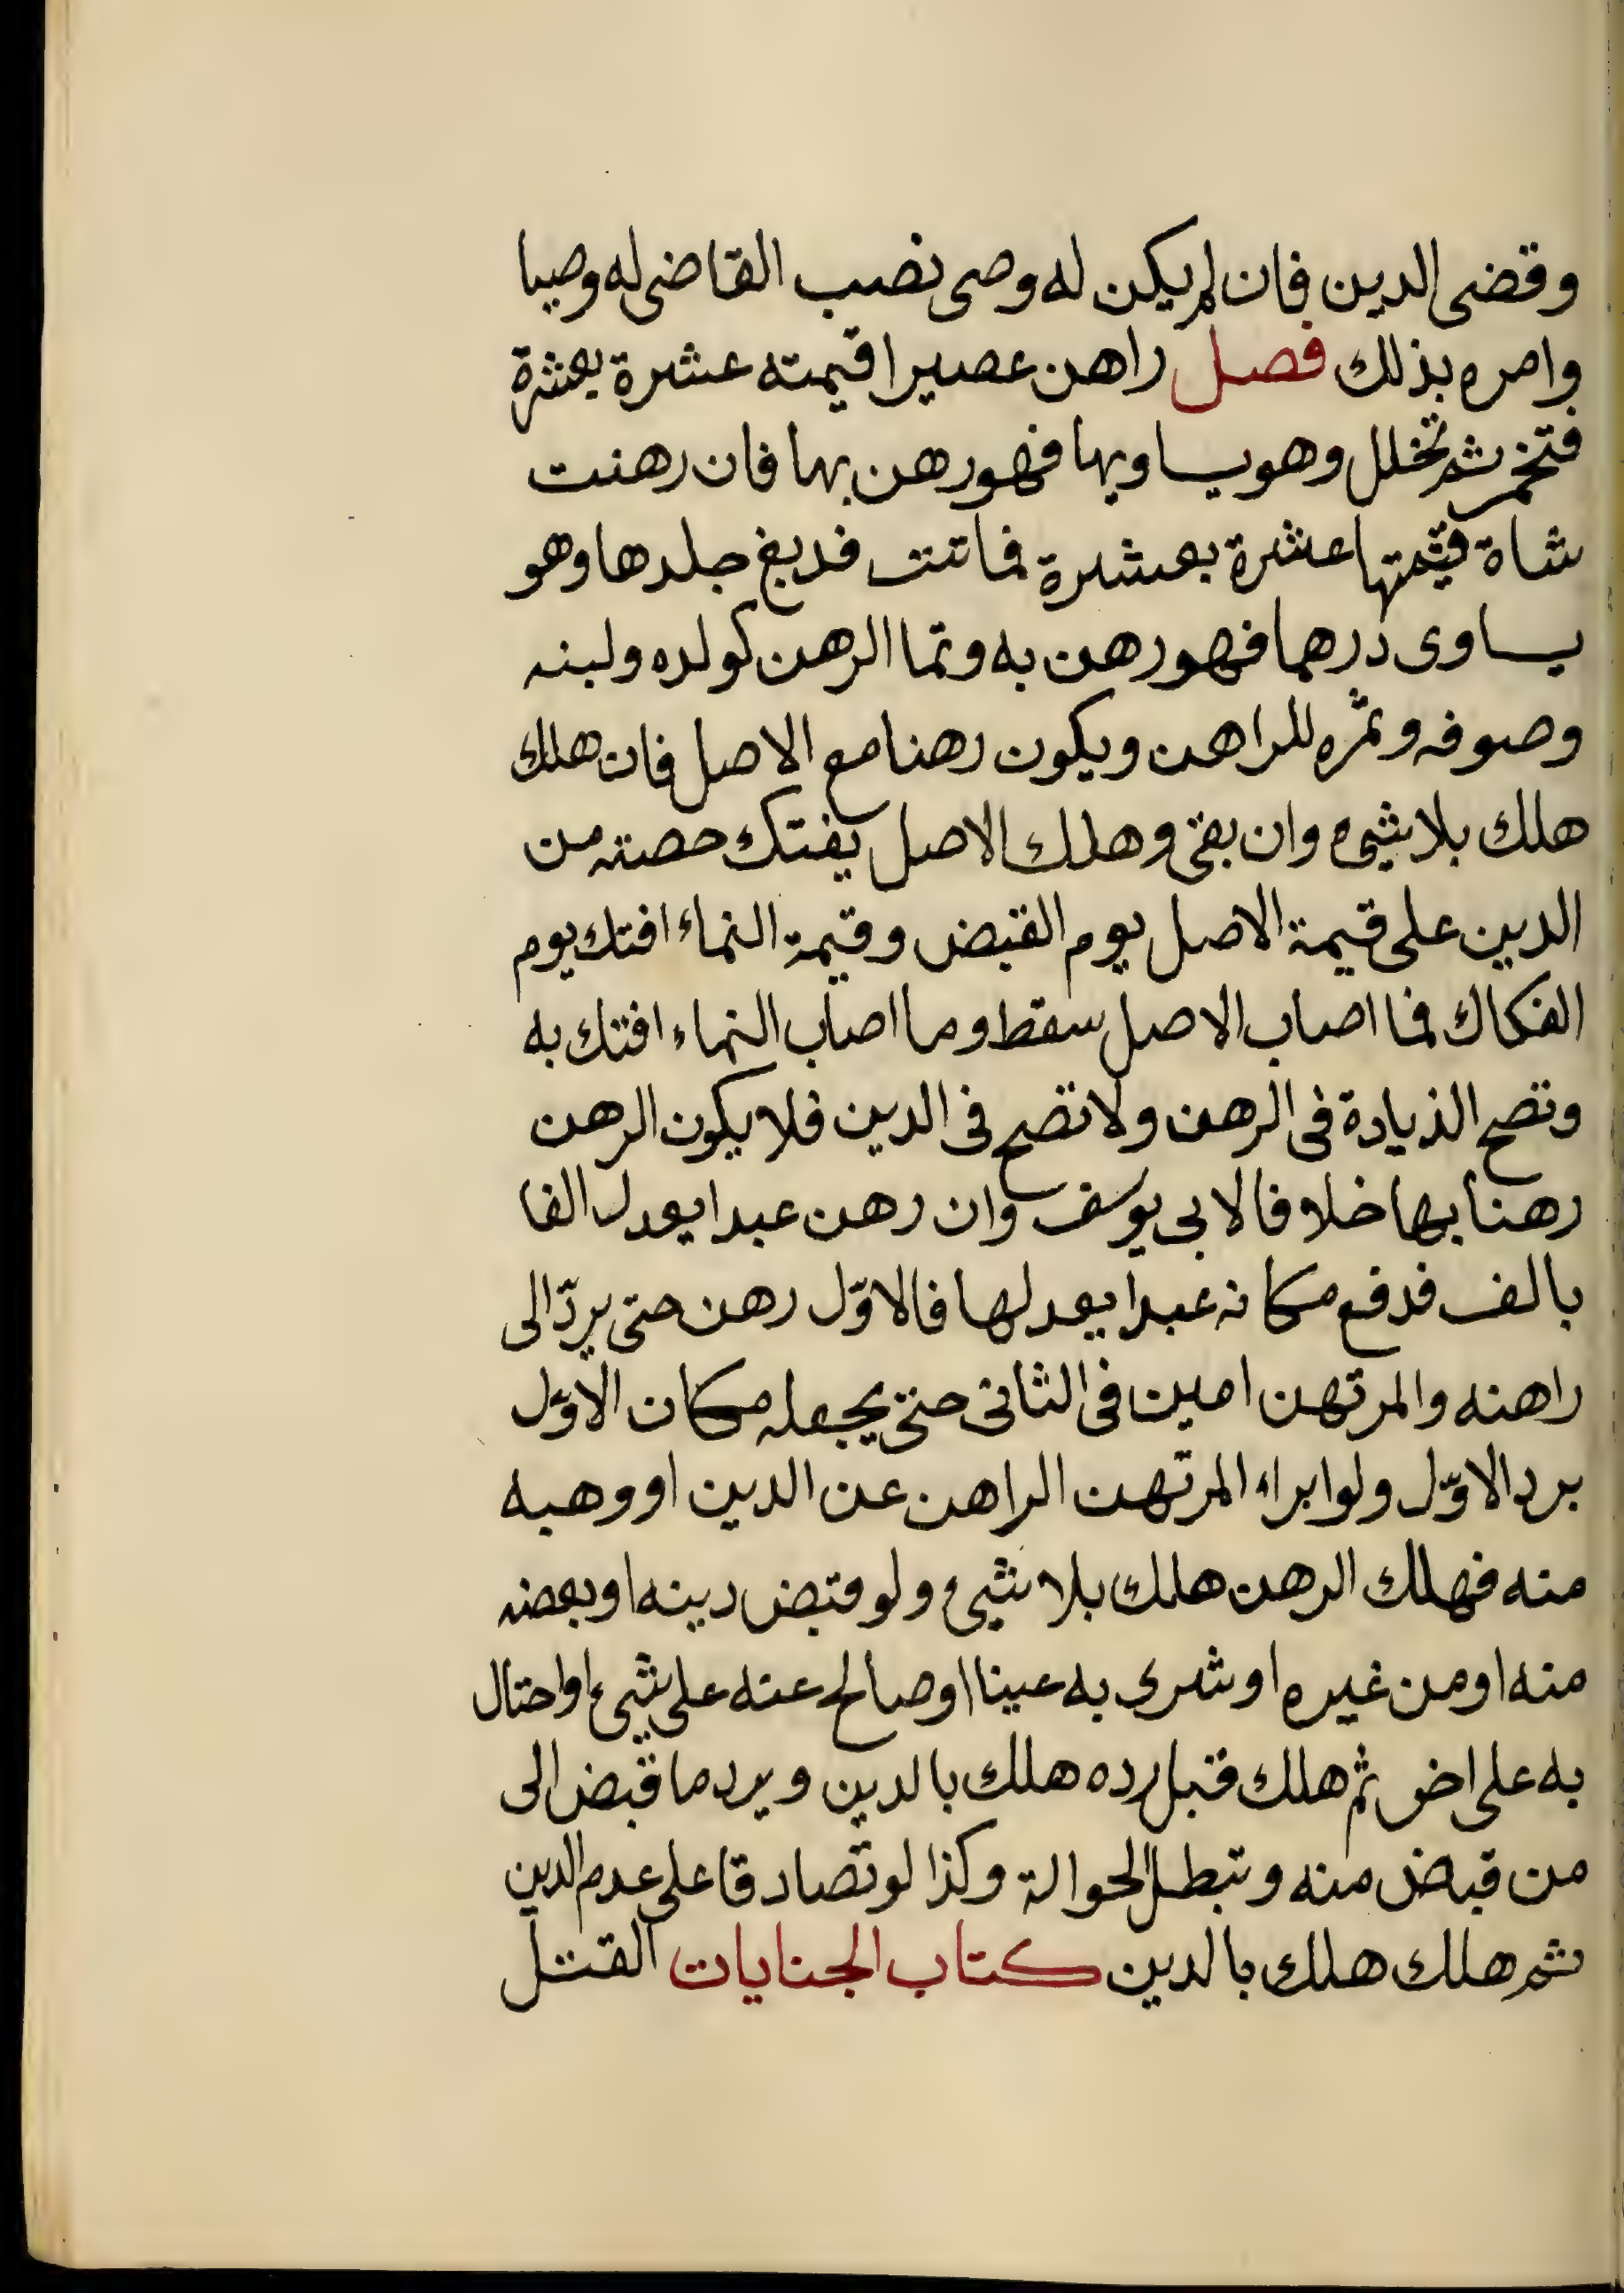 وقضى الدين فان لم يكن له وصى نصب القاضى له وصيا
وامره بذلك فصل راهن عصيرا قيمته عشرة بعشرة
فتخمر ثم تخلل وهو يساويها فهو رهن بها فان رهنت
شاة قيمتها عشرة بعشرة فماتت فدبغ جلدها وهو
يساوى درهما فهو رهن به ونما الرهن كولده ولبنه
وصوفه وثمره للراهن ويكون رهنا مع الاصل فان هلك
هلك بلا شىء وان بقى وهلك الاصل يفتك حصته من
الدين على قيمة الاصل يوم القبض وقيمة النماء افتك يوم
الفكاك فما اصاب الاصل سقط وما اصاب النماء افتك به
وتصح الذيادة فى الرهن ولا تصح فى الدين فلا يكون الرهن
رهنا بها خلافا لابى يوسف وان رهن عبدا يعدل الفا
بالف فدفع مكانه عبدا يعدلها فالاوّل رهن حتى يردّ الى
راهنه والمرتهن امين فى الثانى حتى يجعله مكان الاوّل
برد الاوّل ولو ابراء المرتهن الراهن عن الدين او وهبه
منه فهلك الرهن هلك بلا شىء ولو قبض دينه او بعضه
منه او من غيره او شرى به عينا او صالح عنه على شىء او احتال
به على اخر ثم هلك قبل رده هلك بالدين ويرد ما قبض الى
من قبض منه وتبطل الحوالة وكذا لو تصادقا على عدم الدين
ثم هلك هلك بالدين كتاب الجنايات القتل